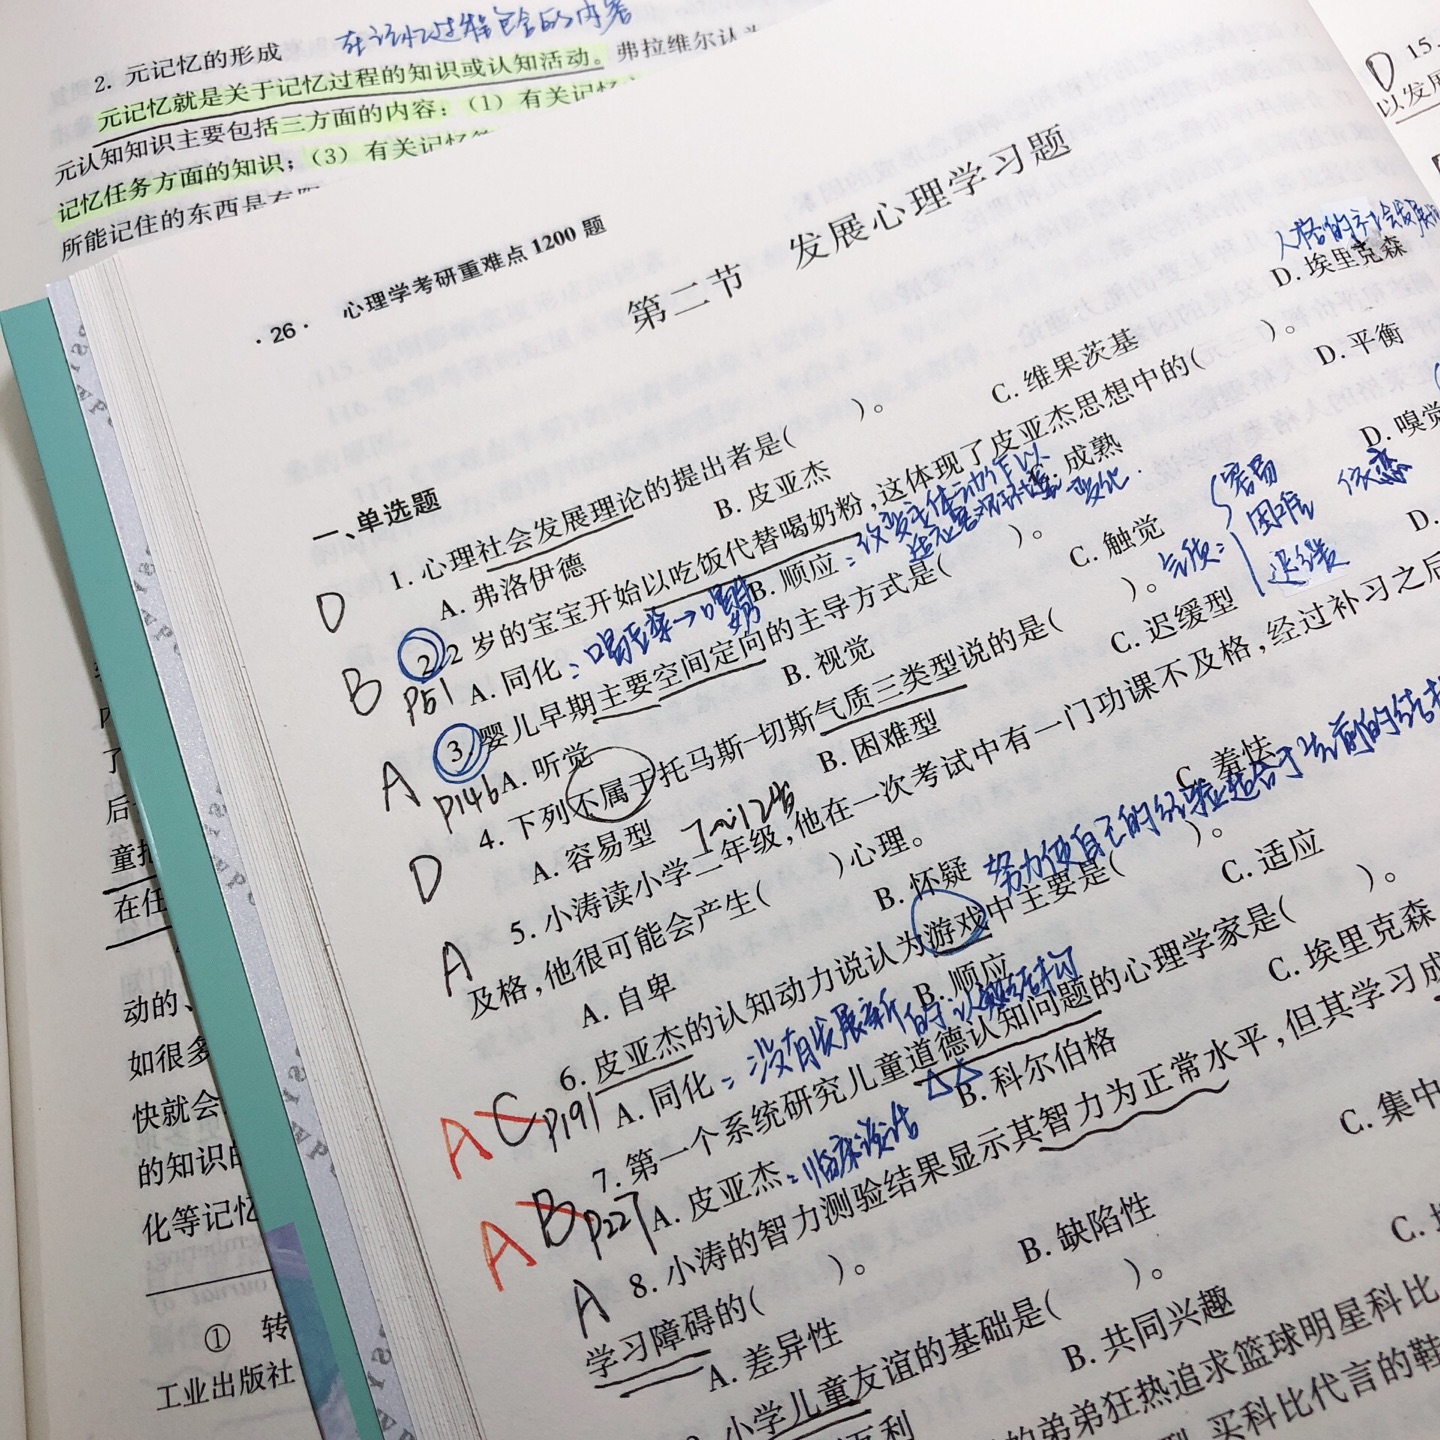 在记忆过程包含的内容
2. 元记忆的形成
元记忆就是关于记忆过程的知识或认知活动。弗拉维尔认为
元认知知识主要包括三方面的内容：（1）有关记忆
记忆任务方面的知识；（3）有关记忆
所能记住的东西是有
·26· 心理学考研重难点1200题
第二节 发展心理学习题
一、单选题
人格的社会发展
D 1. 心理社会发展理论的提出者是( )。
A. 弗洛伊德 B. 皮亚杰 C. 维果茨基 D. 埃里克森
B 2. 2岁的宝宝开始以吃饭代替喝奶粉，这体现了皮亚杰思想中的( )。
P51 A. 同化：喝母乳→喝奶 B. 顺应：改变主体动作以 C. 成熟 D. 平衡
适应客观环境变化.
A 3. 婴儿早期主要空间定向的主导方式是( )。
P146 A. 听觉 B. 视觉 C. 触觉 D. 嗅觉
气质： 容易 困难 迟缓 依恋
D 4. 下列不属于托马斯-切斯气质三类型说的是( )。
A. 容易型 B. 困难型 C. 迟缓型 D.
7~12岁
A 5. 小涛读小学二年级，他在一次考试中有一门功课不及格，经过补习之后
及格，他很可能会产生( )心理。
A. 自卑 B. 怀疑 C. 羞怯
努力使自己的经验适合于当前的结构
A C P191 6. 皮亚杰的认知动力说认为游戏中主要是( )。
A. 同化：没有发展新的认知结构 B. 顺应 C. 适应
A B P227 7. 第一个系统研究儿童道德认知问题的心理学家是( )。
A. 皮亚杰：临床谈话 B. 科尔伯格 C. 埃里克森
A 8. 小涛的智力测验结果显示其智力为正常水平，但其学习成
学习障碍的( )。
A. 差异性 B. 缺陷性 C. 集中
小学儿童友谊的基础是( )。
互利 B. 共同兴趣 C.
的弟弟狂热追求篮球明星科比
买科比代言的鞋
D 15.
以发展
了
后
童
在任
动的、
如很多
快就会
的知识
化等记忆
① 转
工业出版社